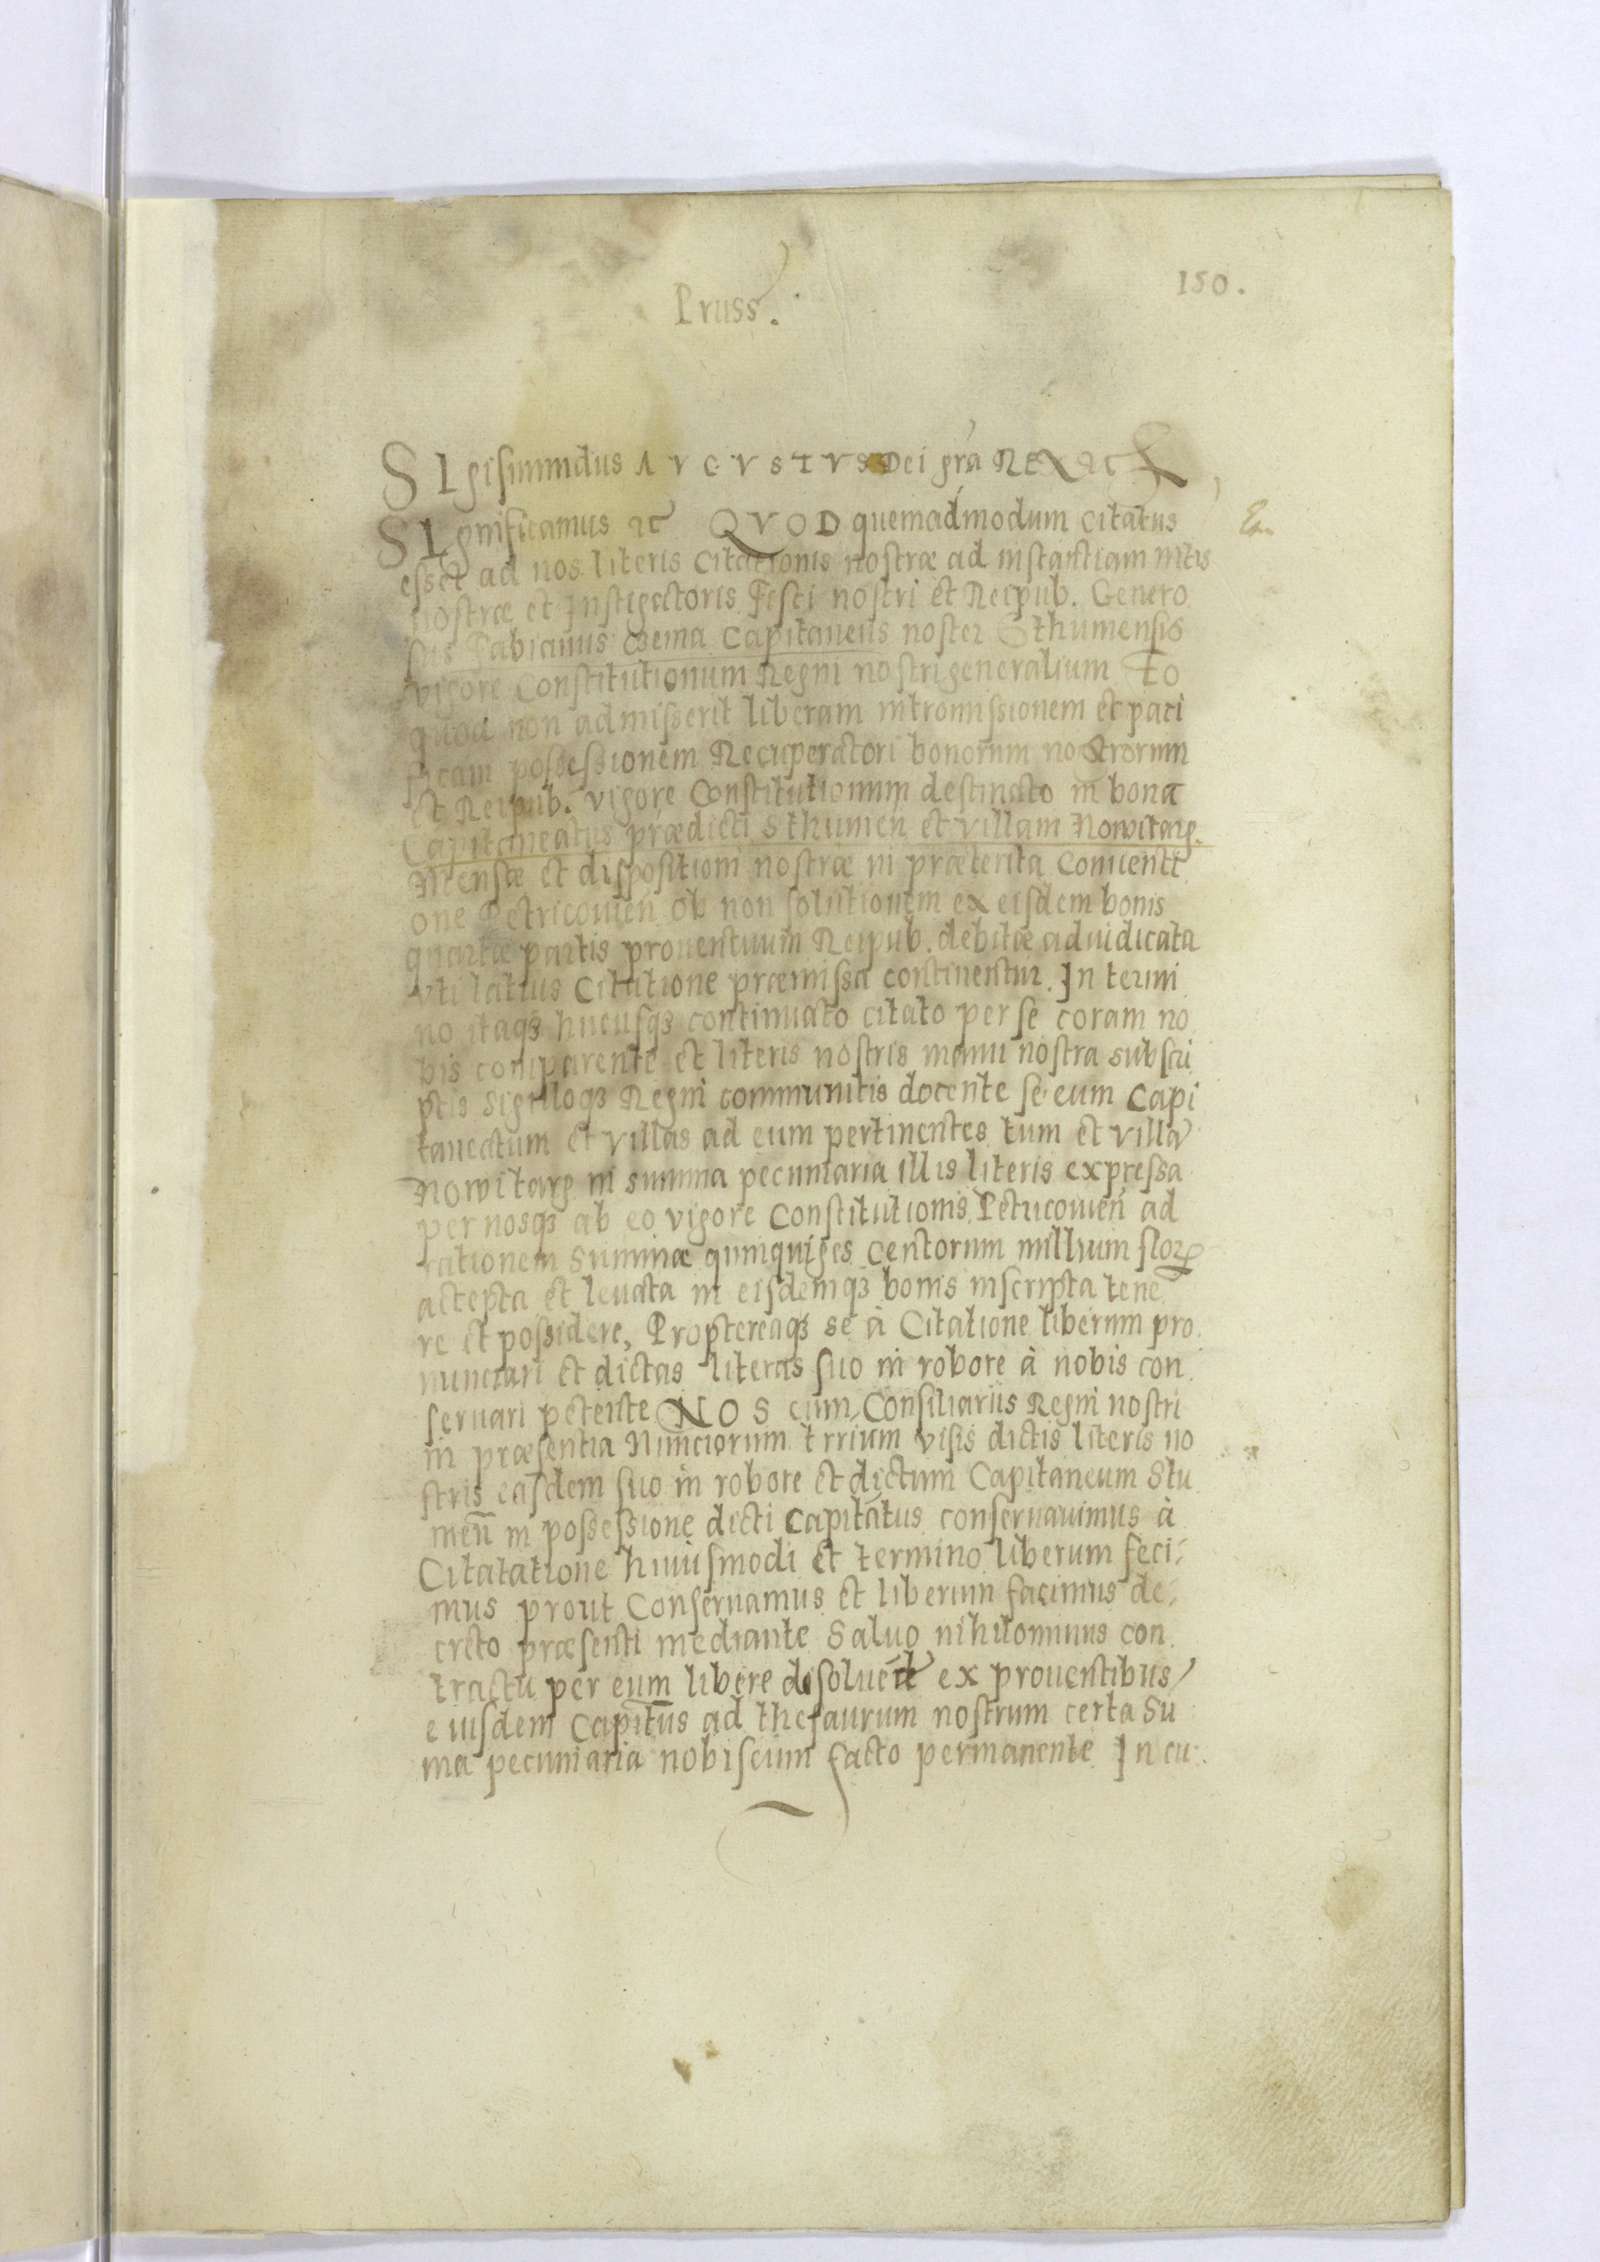 150.
Pruss.
SIgismundus AVGVSTVS Dei gra REX etc
SIgnificamus etc QVOD quemadmodum citatus
esset ad nos literis Citationis nostræ ad instantiam mtis
nostræ et Instigatoris Fisci nostri et Reipub. Genero
sus Fabianus Czema Capitaneus noster Sthumensis
vigore Constitutionum Regni nostri generalium Eo
quod non admisserit liberam intromissionem et paci
ficam possessionem Recuperatori bonorum nostrorum
et Reipub. vigore Constitutionum destinato in bona
Capitaneatus prædicti Sthumen et villam Nowitarg.
Mensæ et dispositioni nostræ in præterita Conuenti
one Petricouien ob non solutionem ex eisdem bonis
quartæ partis prouentuum Reipub. debitæ adiudicata
vti latius Citatione præmissa continentur. In termi
no itaqȝ hucusqȝ continuato citato per se coram no
bis comparente et literis nostris manu nostra subscri
ptis Sigilloqȝ Regni communitis docente se eum Capi
taneatum et villas ad eum pertinentes tum et villa
Nowitarg in summa pecuniaria illis literis expressa
per nosqȝ ab eo vigore Constitutionis Petricouien ad
rationem Summæ quinquiges Centorum millium flor
accepta et leuata in eisdemqȝ bonis inscripta tene
re et possidere, Propterequȝ se à Citatione liberum pro
nunciari et dictas literas suo in robore à nobis con
seruari petente NOS cum Consiliariis Regni nostri
in præsentia Nunciorum trrium visis dictis literis no
stris easdem suo in robore et dictum Capitaneum Stu
men in possessione dicti Capitatus conseruauimus à
Citatatione huiusmodi et termino liberum feci
mus prout Conseruamus et liberum facimus de
creto præsenti mediante Saluo nihilominus con
tractu per eum libere ex prouentibus
eiusdem Capitus ad thesaurum nostrum certa Su
ma pecuniaria nobiscum facto permanente In cu